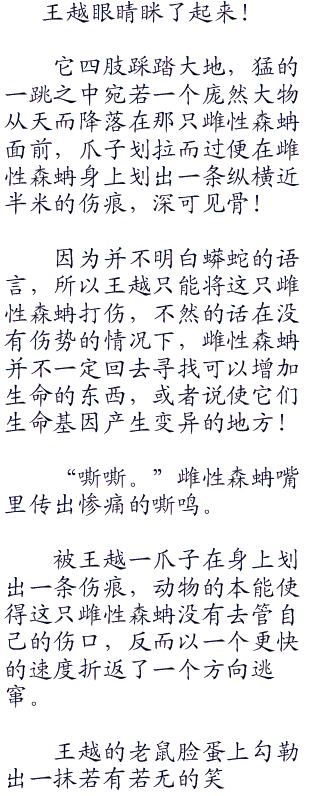 王越眼睛眯了起来！
它四肢踩踏大地，猛的
一跳之中宛若一个庞然大物
从天而降落在那只雌性森蚺
面前，爪子划拉而过便在雌
性森蚺身上划出一条纵横近
半米的伤痕，深可见骨！
因为并不明白蟒蛇的语
言，所以王越只能将这只雌
性森蚺打伤，不然的话在没
有伤势的情况下，雌性森蚺
并不一定回去寻找可以增加
生命的东西，或者说使它们
生命基因产生变异的地方！
“嘶嘶。”雌性森蚺嘴
里传出惨痛的嘶鸣。
被王越一爪子在身上划
出一条伤痕，动物的本能使
得这只雌性森蚺没有去管自
己的伤口，反而以一个更快
的速度折返了一个方向逃
窜。
王越的老鼠脸蛋上勾勒
出一抹若有若无的笑